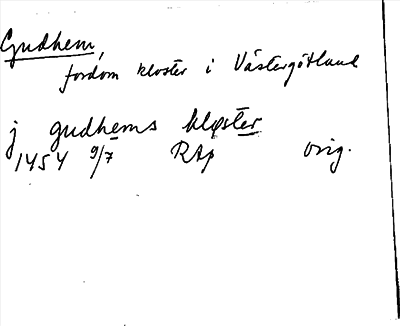 Gudhem,
fordom kloster i Västergötland
j gudhems kloster
1454 9/7 RAp orig.